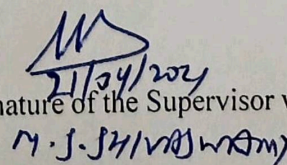 21/04/2021
nature of the Supervisor w
M. J. SHIVASWAMY